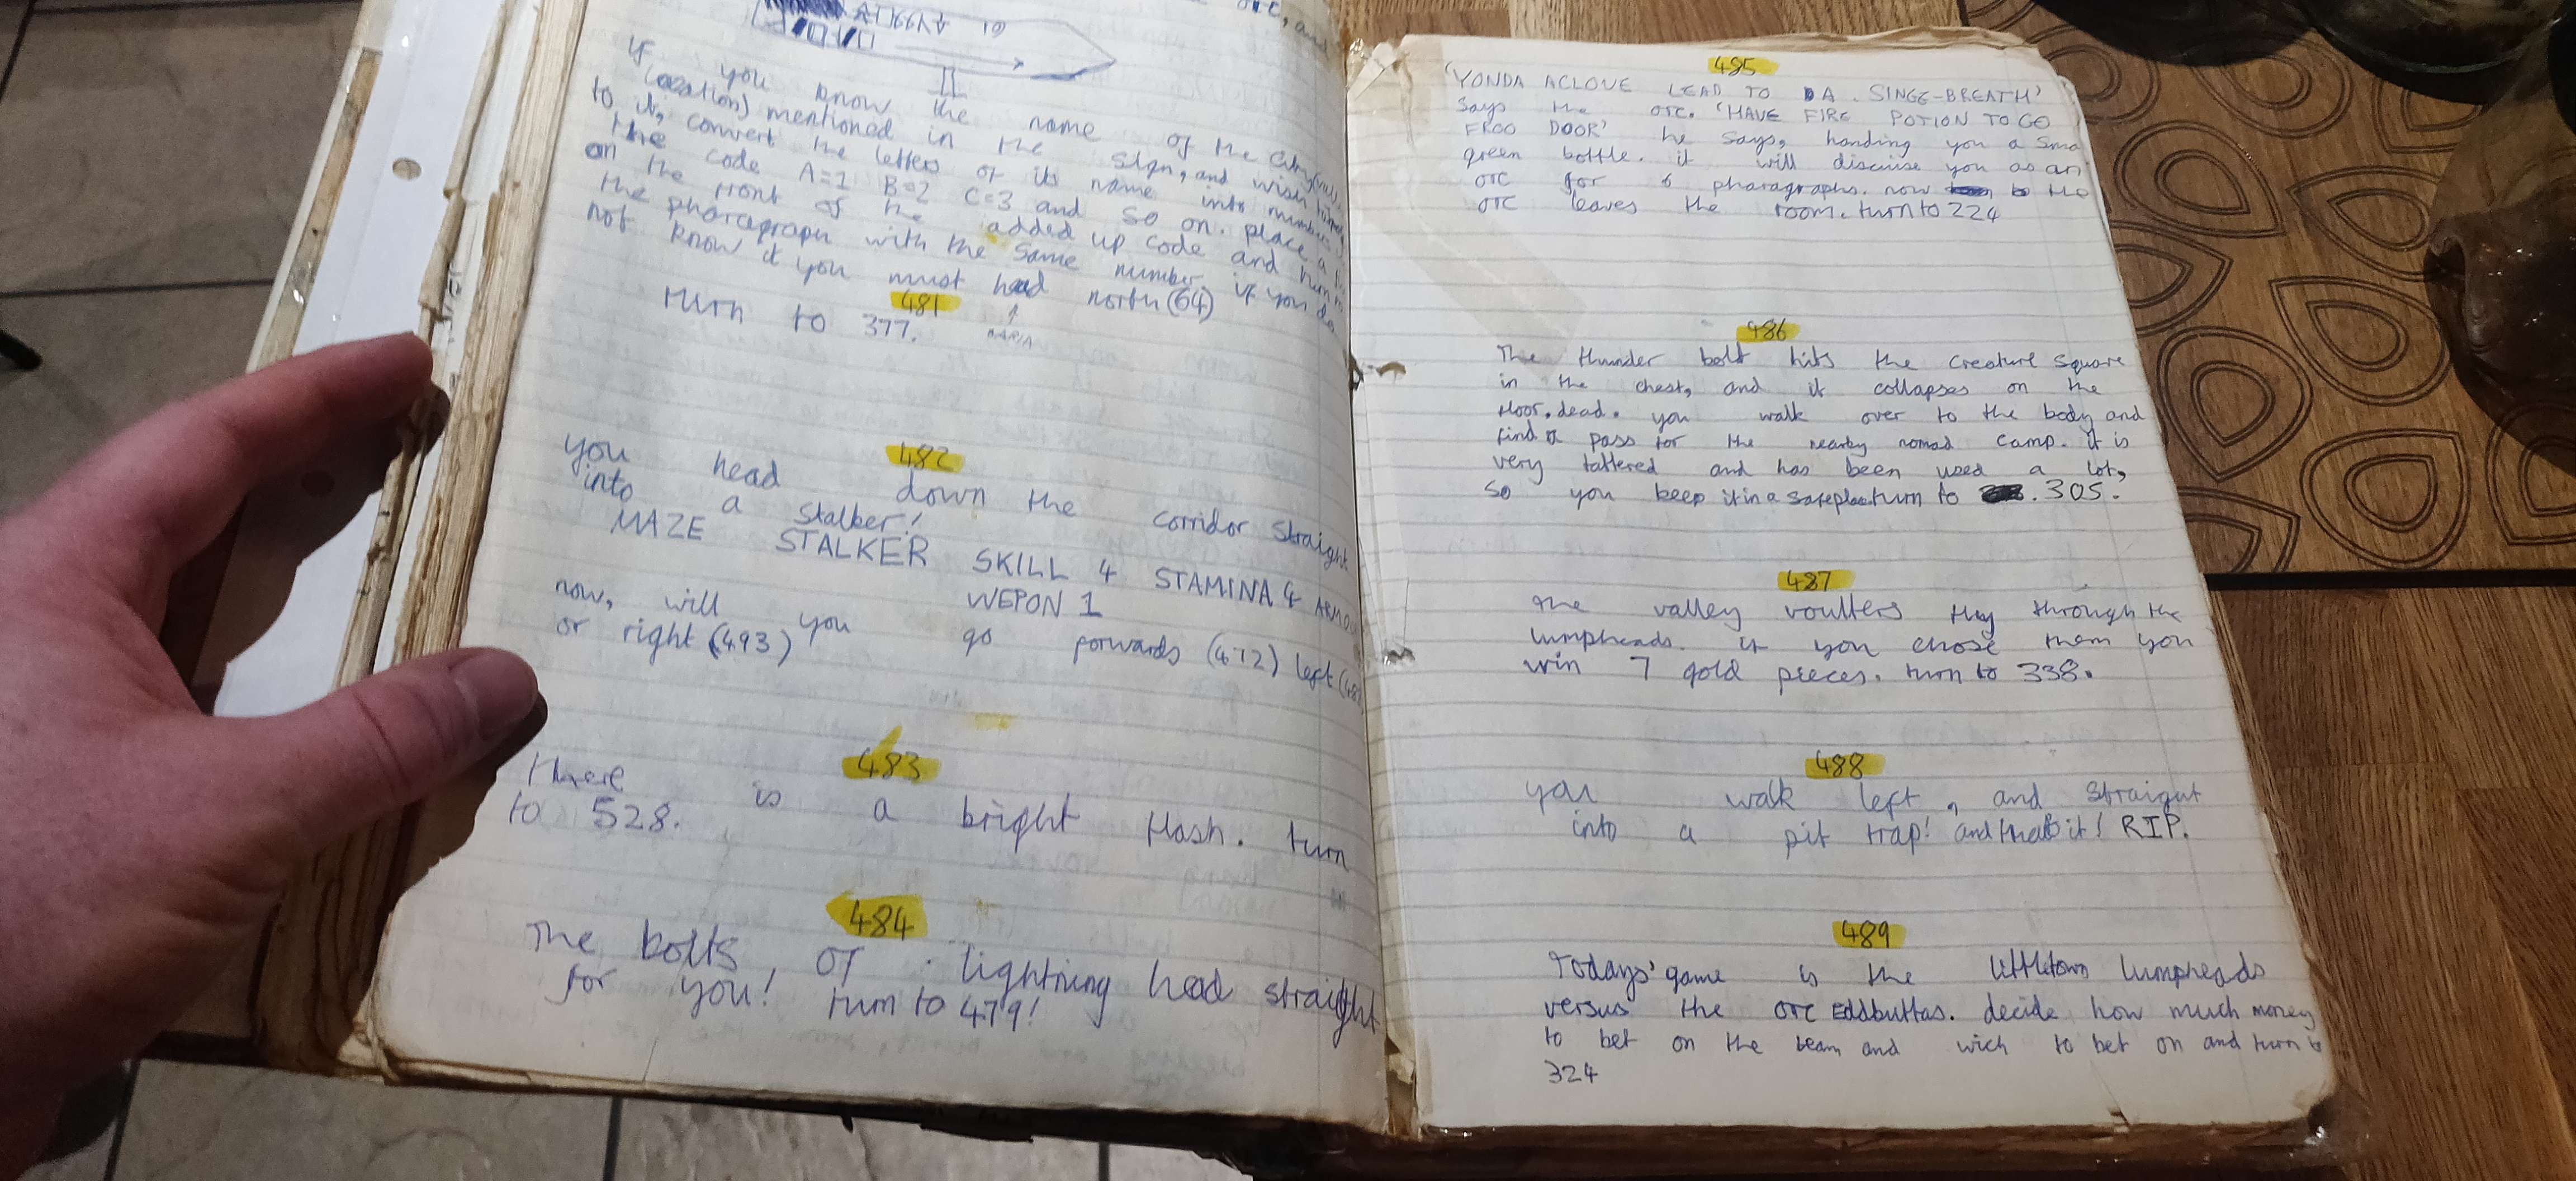 orc, and
10
If you know the name of the City
location) mentioned in the sign, and wish
to it, convert the letters of its name into numbers
the code A=1 B=2 C=3 and so on. place a
on the front of the added up code and turn
the pharagraph with the same number. if you do
not know it you must head north (64)
MARIA
481
turn to 377.
482
you head down the corridor straight
into a stalker!
MAZE STALKER SKILL 4 STAMINA 4
WEPON 1
now, will you go forwards (472) left
or right (493)
483
there is a bright flash. turn
to 528.
484
The bolts of lightning head straight
for you! turn to 479!
485
'YONDA ACLOVE LEAD TO DA SINGE-BREATH'
says the orc. 'HAVE FIRE POTION TO GO
FROO DOOR' he says, handing you a
green bottle. it will discuise you as an
orc for 6 pharagraphs. now the
orc leaves the room. turn to 224
486
The thunder bolt hits the creature square
in the chest, and it collapses on the
floor. dead. you walk over to the body and
find a pass for the nearby nomad camp. it is
very tattered and has been used a lot,
so you keep it in a safe place turn to 305.
487
the valley voulters they through the
lumpheads. if you chose them you
win 7 gold pieces. turn to 338.
488
you walk left, and straight
into a pit trap! and thats it! RIP.
489
Todays' game is the littletown lumpheads
versus the orc Eddbuttas. decide how much money
to bet on the team and wich to bet on and turn to
324